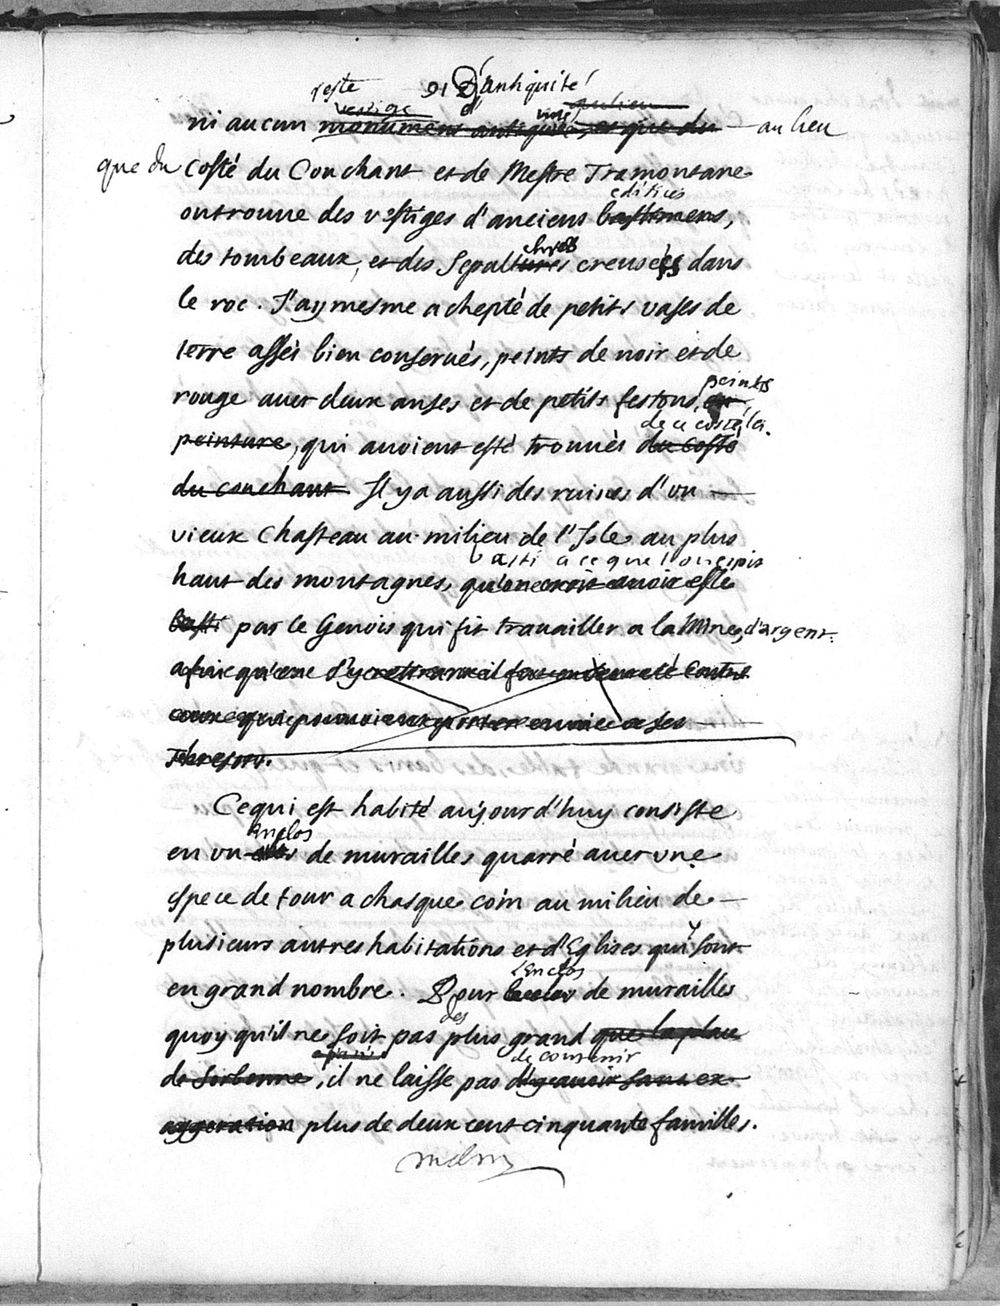 reste 91 D'antiquité
vestige
ni aucun monument antique, et que du au lieu
que du Costé du Couchant et de Mestre Tramontane
edifices
on trouue des vestiges d'anciens bastimens,
des tombeaux, et des Sepultures creusées dans
le roc. J'ay mesme achepté de petits vases de
terre assés bien conserués, peints de noir et de
peints
rouge auec deux anses et de petits festons,
de ce costé la.
peinture, qui auoient esté trouués du costé
du couchant Il y a aussi des ruines d'un
vieux Chasteau au milieu de l'Isle au plus
basti a ce que l'on
haut des montagnes, qu'on croit auoir esté
basti par le Genois qui fit trauailler a la Mine d'argent.
afin que
thresors.
Ce qui est habité aujourd'huy consiste
Enclos
en un de murailles quarré auec une
espece de tour a chasque coin au milieu de
plusieurs autres habitations et d'Eglises qui y sont
L'Enclos
en grand nombre. Pour de murailles
des
quoy qu'il ne soit pas plus grand que la place
de contenir
de Sorbonne, il ne laisse pas d'y auoir sans ex-
aggeration plus de deux cent cinquante familles.